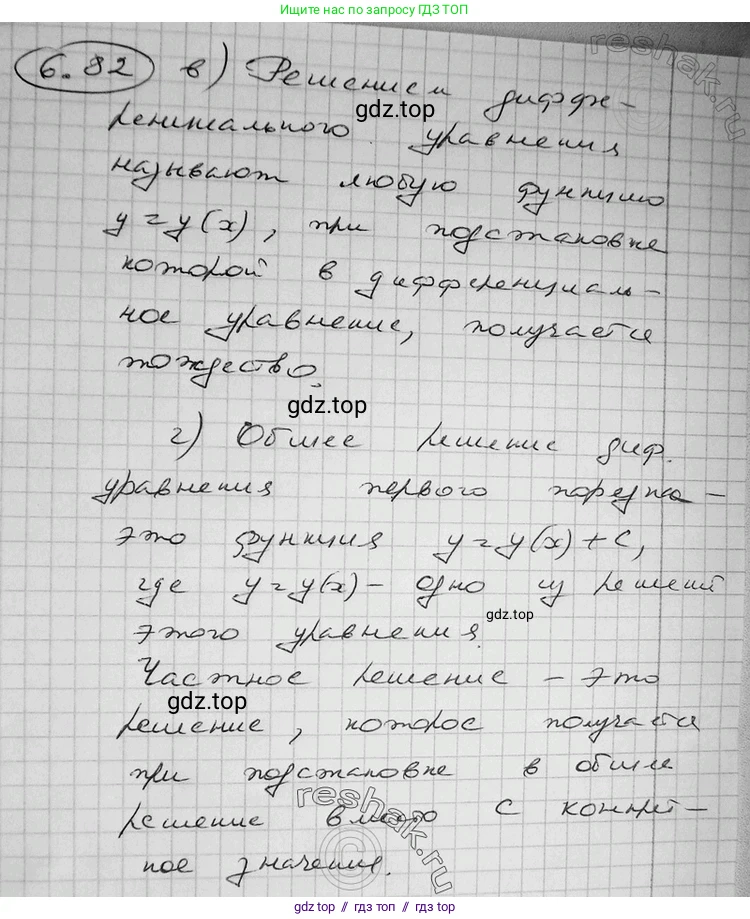 Ищите нас по запросу ГДЗ ТОП
6.82 в) Решением диффе-
gdz.top
ренциального уравнения
называют любую функцию
y = y(x), при подстановке
которой в дифференциаль-
ное уравнение, получается
тождество.
gdz.top
г) Общее решение диф.
уравнения первого порядка -
это функция y = y(x) + C,
где y = y(x) - одно из решений
gdz.top
этого уравнения.
Частное решение - это
gdz.top
решение, которое получается
при подстановке в общее
решение вместо C конкрет-
ное значение.
reshak.ru
reshak.ru
gdz.top // гдз.топ // gdz.top // гдз.топ